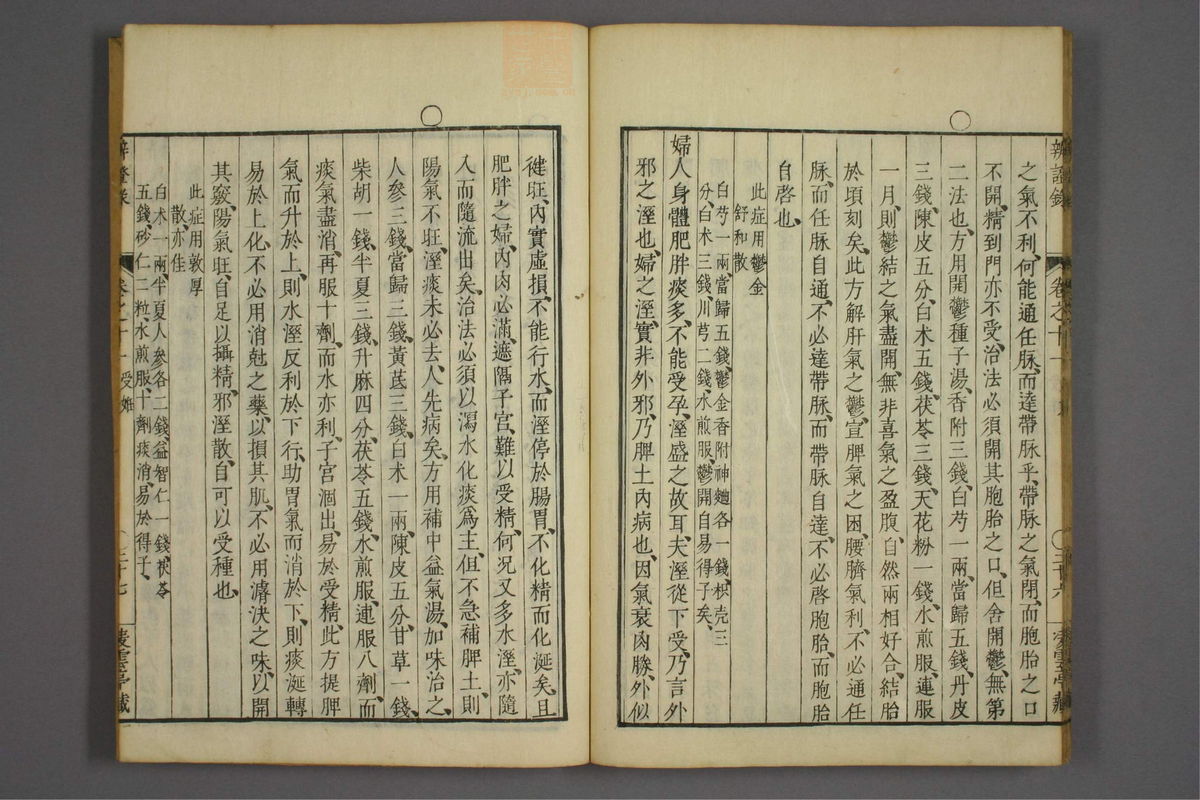 辨證錄 卷之十一
之氣不利、何能通任脉、而達帶脉乎、帶脉之氣閉、而胞胎之口
不開、精到門亦不受、治法必須開其胞胎之口、但舍開鬱、無第
二法也、方用開鬱種子湯、香附三錢、白芍一兩、當歸五錢、丹皮
三錢、陳皮五分、白术五錢、茯苓三錢、天花粉一錢、水煎服、連服
一月、則鬱結之氣盡開、無非喜氣之盈腹、自然兩相好合、結胎
於頃刻矣、此方解肝氣之鬱、宣脾氣之困、腰臍氣利、不必通任
脉、而任脉自通、不必達帶脉、而帶脉自達、不必啓胞胎、而胞胎
自啓也、
此症用鬱金
舒和散
白芍一兩、當歸五錢、鬱金香附神麯各一錢、枳壳三
分、白术三錢、川芎二錢、水煎服、鬱開自易得子矣、
婦人身體肥胖、痰多、不能受孕、溼盛之故耳、夫溼從下受、乃言外
邪之溼也、婦之溼、實非外邪、乃脾土內病也、因氣衰肉勝、外似
健旺、內實虛損、不能行水、而溼停於腸胃、不化精而化涎矣、且
肥胖之婦、內肉必滿、遮隔子宮、難以受精、何况又多水溼、亦隨
入而隨流出矣、治法必須以瀉水化痰爲主、但不急補脾土、則
陽氣不旺、溼痰未必去、人先病矣、方用補中益氣湯、加味治之、
人參三錢、當歸三錢、黃芪三錢、白术一兩、陳皮五分、甘草一錢、
柴胡一錢、半夏三錢、升麻四分、茯苓五錢、水煎服、連服八劑、而
痰氣盡消、再服十劑、而水亦利、子宮涸出、易於受精、此方提脾
氣而升於上、則水溼反利於下行、助胃氣而消於下、則痰涎轉
易於上化、不必用消尅之藥、以損其肌、不必用濬決之味、以開
其竅、陽氣旺、自足以攝精、邪溼散、自可以受種也、
此症用敦厚
散亦佳
白术一兩、半夏人參各二錢、益智仁一錢、茯苓
五錢、砂仁二粒、水煎服、十劑痰消、易於得子、
辨證錄 卷之十一 受妊 二十七